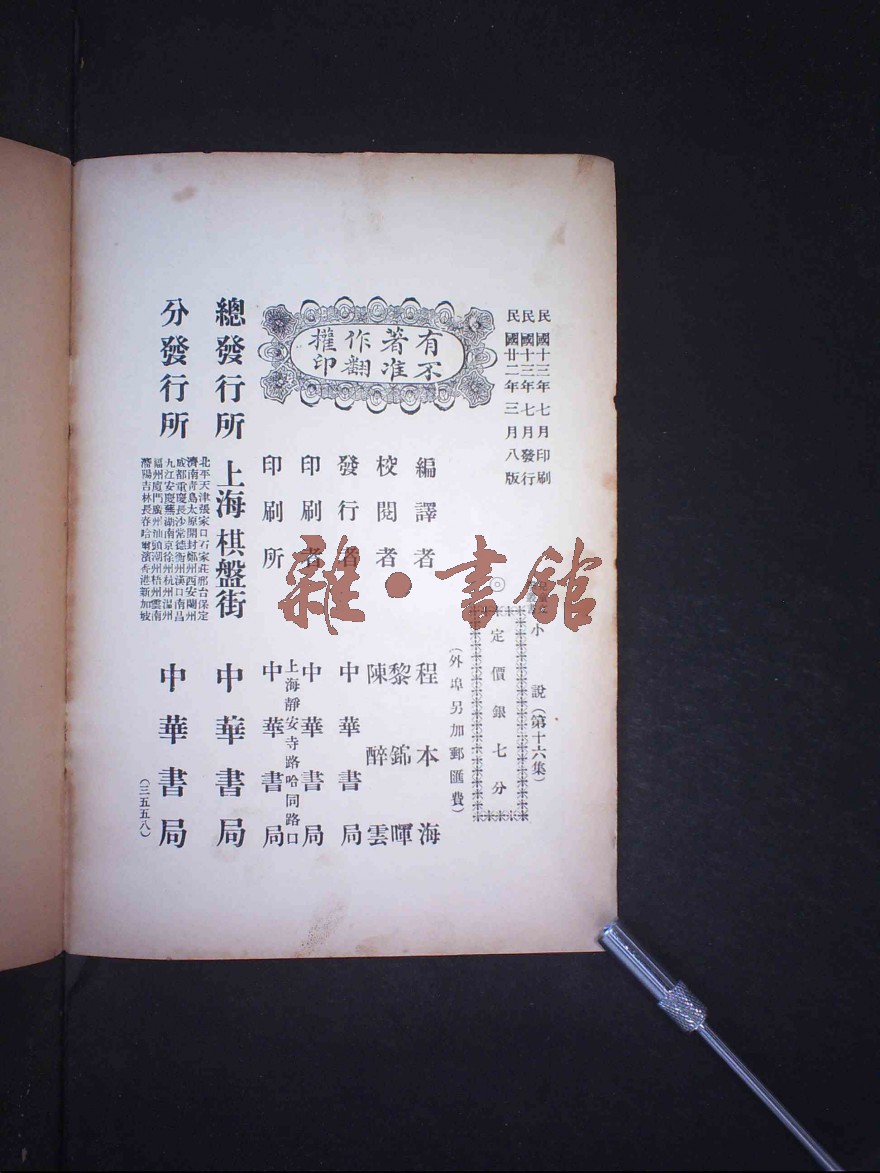 民國十三年七月印刷
民國十三年七月發行
民國廿二年三月八版
有著作權
不准翻印
小說(第十六集)
◎定價銀七分
(外埠另加郵匯費)
編譯者 程本海
校閱者 黎錦暉
陳醉雲
發行者 中華書局
印刷者 中華書局
上海靜安寺路哈同路口
印刷所 中華書局
總發行所 上海棋盤街 中華書局
分發行所 中華書局
北平天津張家口石家莊邢台保定
濟南青島太原開封鄭州西安蘭州
成都重慶長沙常德衡州漢口南昌
九江安慶蕪湖南京徐州杭州溫州
福州廈門廣州汕頭潮州梧州雲南
瀋陽吉林長春哈爾濱香港新加坡
(三五五八)
雜·書館